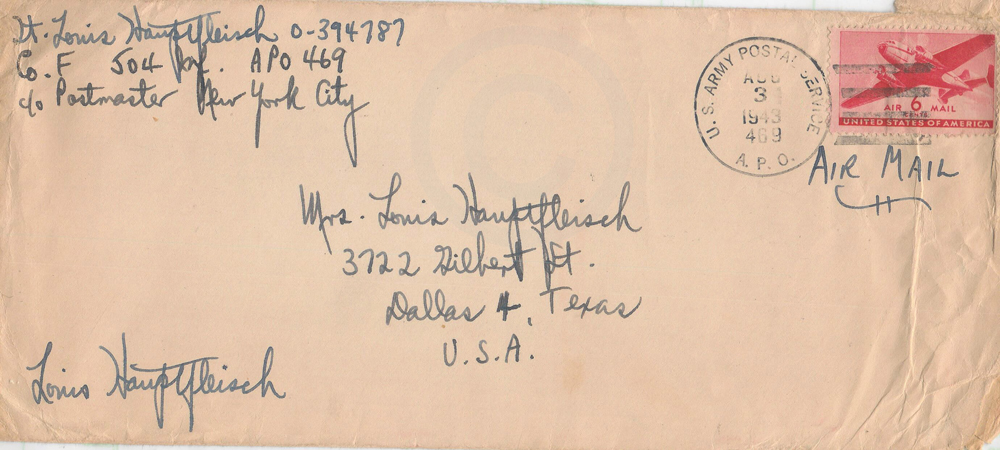 Lt. Louis Hauptfleisch O-394787
Co. F 504 Inf. APO 469
c/o Postmaster New York City
U. S. ARMY POSTAL SERVICE
AUG
3
1943
469
A. P. O.
AIR 6 MAIL
UNITED STATES OF AMERICA
AIR MAIL
Mrs. Louis Hauptfleisch
3722 Gilbert St.
Dallas 4, Texas
U.S.A.
Louis Hauptfleisch